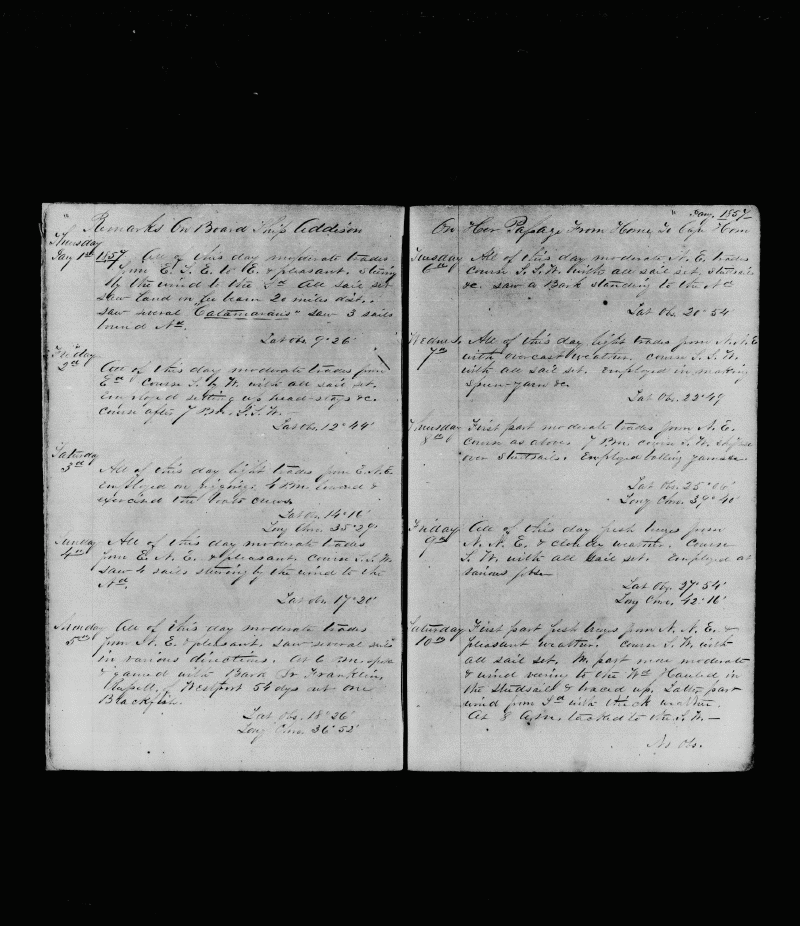 Remarks On Board Ship Addison
Thursday
Jany 1st 1857 All of this day moderate trades
from E. S. E. to E. & pleasant. Steering
by the wind to the Sd All sail set
Saw land in bearn 20 miles dist.
Saw several "Catamarans" Saw 3 sails
bound Nd.
Lat obs. 9° 26'
Friday
2nd All of this day moderate trades from
Ed Course S. by W. with all sail set.
Employed setting up head-stays &c.
Course after 7 P.M. S.S.W.—
Lat obs. 12° 44'
Saturday
3rd All of this day light trades from E.N.E.
Employed on rigging. 4 P.M. lowered &
exercised the boats crews
Lat Obs. 14° 16'
Long Chro. 35° 29'
Sunday All of this day moderate trades
4th from E. N. E. & pleasant. Course S.S.W.
Saw 4 sails steering by the wind to the
Nd.
Lat Obs. 17° 20'
Monday All of this day moderate trades
5th from N. E. & pleasant. Saw several sails
in various directions. At 6 P.M. spoke
& gamed with Bark Dr Franklin
Russell, Westport 54 days out one
Blackfish.
Lat Obs. 18° 26'
Long Chro. 36° 52'
" Jany. 1857
On Her Passage From Home To Cape Horn
Tuesday All of this day moderate N. E. trades
6th course S. S. W. with all sail set, studsails
&c. saw a Bark standing to the Nd
Lat Obs. 20° 54'
Wednes. All of this day light trades from N.N.E
7th with overcast weather. course S. S. W.
with all sail set. employed in making
spun-yarn &c.
Lat Obs. 22° 49
Thursday First part moderate trades from N. E.
8th course as above. 7 P.M. course S. W. shifted
over studsails. Employed balling yarns &c.
Lat Obs. 25° 06'
Long Chro. 39° 40'
Friday All of this day fresh breezes from
9th N. N. E. & cloudy weather. Course
S. W. with all sail set. Employed at
various jobs
Lat Obs. 27° 54'
Long Chro. 42° 16'
Saturday First part fresh breezes from N. N. E. &
10th pleasant weather. course S. W. with
all sail set. M. part more moderate
& wind veering to the Wd Hauled in
the studsails & braced up. Latter part
wind from Sd with thick weather.
At 8 A.M. tacked to the S. W.—
No Obs.